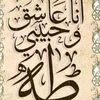 أنا عاشق
وحبيبي
طه